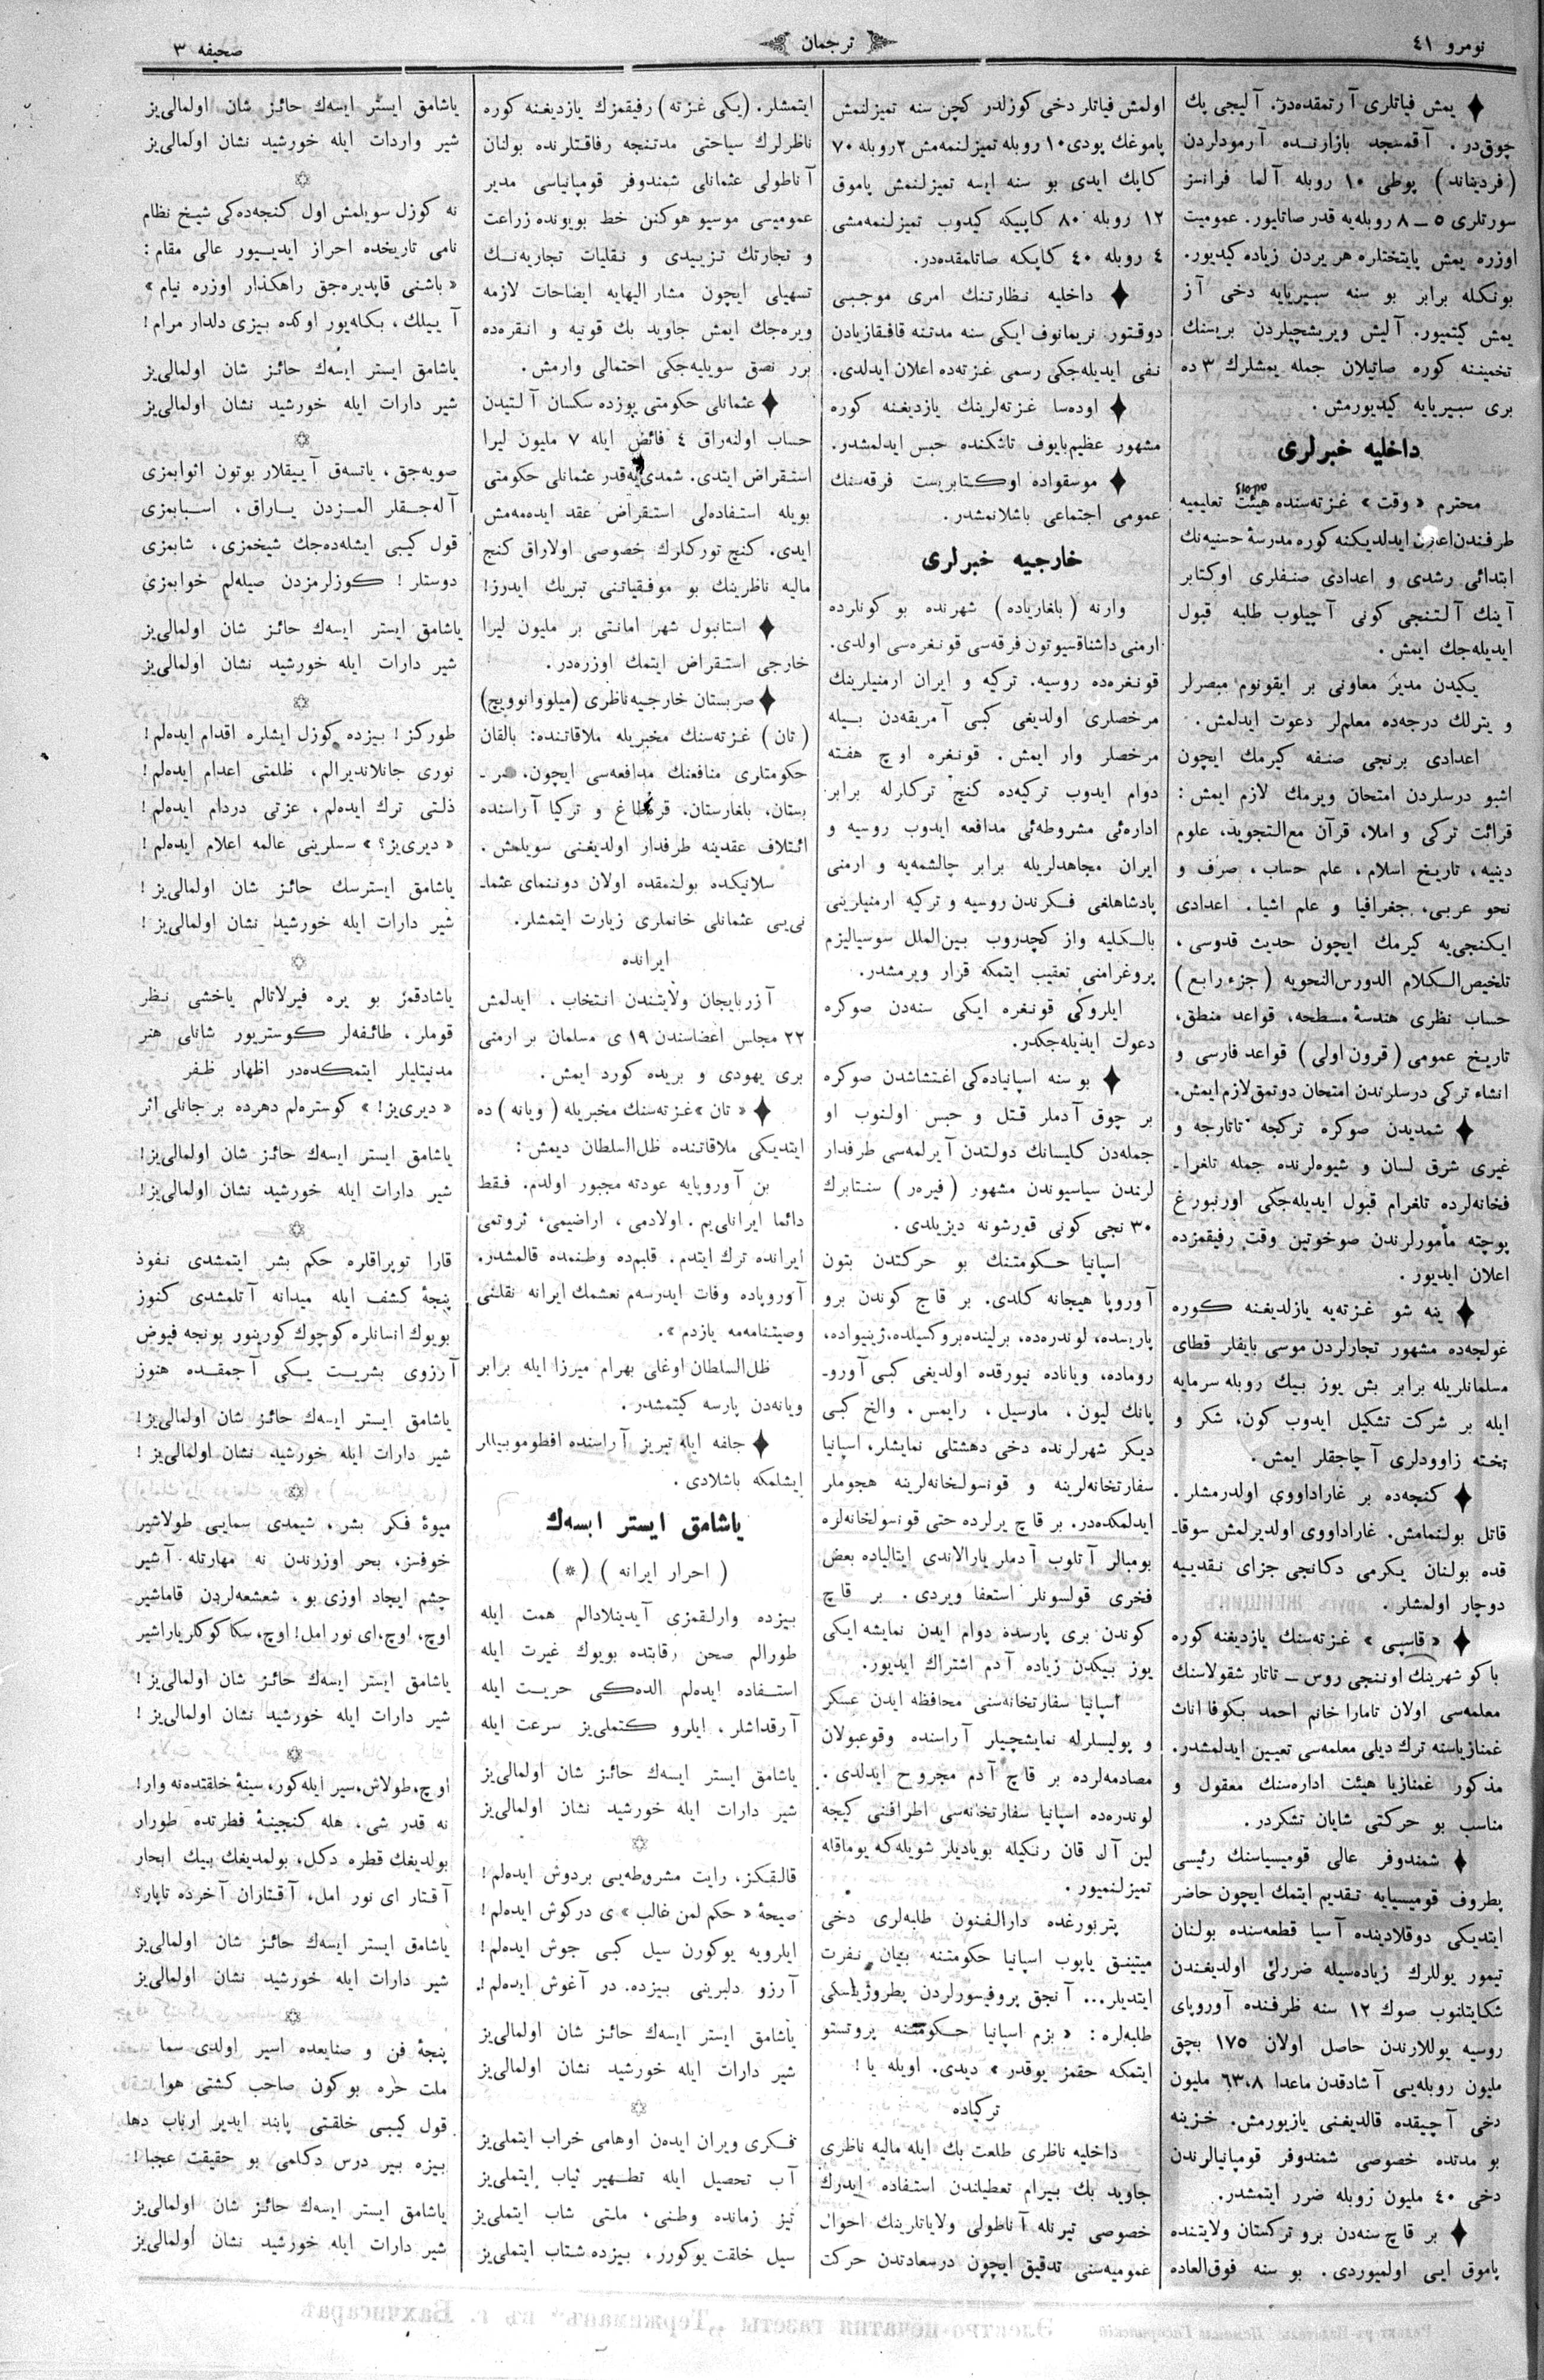 نومرو ٤١
ترجمان
صحیفه ٣
یمش فیاتلری آرتمقده‌در. آلیجی پك
چوق‌در. آقمسجد بازارنده آرمودلردن
(فردیناند) پوطی ١٠ روبله آلما فرانسز
سورتلری ٥ ـ ٨ روبله‌یه قدر صاتلیور. عمومیت
اوزره یمش پایتختلره هر یردن زیاده کیدیور.
بونکله برابر بو سنه سیبریایه دخی آز
یمش کیتمیور. آلیش ویریشچیلردن بریسنك
تخمیننه کوره صاتیلان جمله یمشلرك ٣ ده
بری سیبریایه کیدیورمش.
داخلیه خبرلری
محترم « وقت » غزته‌سنده هیئت تعلیمیه
طرفندن اعلان ایدلدیکنه کوره مدرسهٔ حسنیه‌نك
ابتدائی رشدی و اعدادی صنفلری اوکتابر
آینك آلتنجی کونی آچیلوب طلبه قبول
ایدیله‌جك ایمش.
یکیدن مدیر معاونی بر ایقونوم مبصرلر
و یترلك درجه‌ده معلملر دعوت ایدلمش.
اعدادی برنجی صنفه کیرمك ایچون
اشبو درسلردن امتحان ویرمك لازم ایمش:
قرائت ترکی و املا، قرآن مع‌التجوید، علوم
دینیه، تاریخ اسلام، علم حساب، صرف و
نحو عربی، جغرافیا و علم اشیا. اعدادی
ایکنجی‌یه کیرمك ایچون حدیث قدوسی،
تلخیص‌الکلام الدروس‌النحویه (جزء رابع)
حساب نظری هندسهٔ مسطحه، قواعد منطق،
تاریخ عمومی (قرون اولی) قواعد فارسی و
انشاء ترکی درسلرندن امتحان دوتمق لازم ایمش.
شمدیدن صوکره ترکجه تاتارجه و
غیری شرق لسان و شیوه‌لرنده جمله تلغرا-
فخانه‌لرده تلغرام قبول ایدیله‌جکی اورنبورغ
پوچته مأمورلرندن صوخوتین وقت رفیقمزده
اعلان ایدیور.
ینه شو غزته‌یه یازلدیغنه کوره
غولجه‌ده مشهور تجارلردن موسی بایفلر قطای
مسلمانلریله برابر بش یوز بیك روبله سرمایه
ایله بر شرکت تشکیل ایدوب کون، شکر و
تخته زاوودلری آچاجقلر ایمش.
کنجه‌ده بر غاراداووی اولدرمشلر.
قاتل بولنمامش. غاراداووی اولدیرلمش سوقا-
قده بولنان یکرمی دکانجی جزای نقدییه
دوچار اولمشلر.
« قاسپی » غزته‌سنك یازدیغنه کوره
باکو شهرینك اوننجی روس ـ تاتار شقولاسنك
معلمه‌سی اولان تامارا خانم احمد بکوفا اناث
غمنازیاسنه ترك دیلی معلمه‌سی تعیین ایدلمشدر.
مذکور غمنازیا هیئت اداره‌سنك معقول و
مناسب بو حرکتی شایان تشکردر.
شمندوفر عالی قومیسیاسنك رئیسی
پطروف قومیسیایه تقدیم ایتمك ایچون حاضر
ایتدیکی دوقلادینده آسیا قطعه‌سنده بولنان
تیمور یوللرك زیاده‌سیله ضررلی اولدیغندن
شکایتلنوب صوك ١٢ سنه ظرفنده آوروپای
روسیه یوللارندن حاصل اولان ١٧٥ بچق
ملیون روبله‌یی آشادقدن ماعدا ٦٣٬٨ ملیون
دخی آچیقده قالدیغنی یازیورمش. خزینه
بو مدتده خصوصی شمندوفر قومپانیالرندن
دخی ٤٠ ملیون روبله ضرر ایتمشدر.
بر قاچ سنه‌دن برو ترکستان ولایتنده
پاموق ایی اولمیوردی. بو سنه فوق‌العاده
اولمش فیاتلر دخی کوزلدر کچن سنه تمیزلنمش
پاموغك پودی ١٠ روبله تمیزلنمه‌مش ٢ روبله ٧٠
کاپك ایدی بو سنه ایسه تمیزلنمش پاموق
١٢ روبله ٨٠ کاپیکه کیدوب تمیزلنمه‌مشی
٤ روبله ٤٠ کاپکه صاتلمقده‌در.
داخلیه نظارتنك امری موجبنی
دوقتور نریمانوف ایکی سنه مدتنه قافقازیادن
نفی ایدیله‌جکی رسمی غزته‌ده اعلان ایدلدی.
اوده‌سا غزته‌لرینك یازدیغنه کوره
مشهور عظیم‌بایوف تاشکنده حبس ایدلمشدر.
موسقواده اوکتابریست فرقه‌سنك
عمومی اجتماعی باشلانمشدر.
خارجیه خبرلری
وارنه (بلغاریاده) شهرنده بو کونلرده
ارمنی داشناقسیوتون فرقه‌سی قونغره‌سی اولدی.
قونغره‌ده روسیه، ترکیه و ایران ارمنیلرینك
مرخصلری اولدیغی کبی آمریقه‌دن بیله
مرخصلر وار ایمش. قونغره اوچ هفته
دوام ایدوب ترکیه‌ده کنج ترکلرله برابر
اداره‌ئی مشروطه‌ئی مدافعه ایدوب روسیه و
ایران مجاهدلریله برابر چالشمه‌یه و ارمنی
پادشاهلغی فکرندن روسیه و ترکیه ارمنیلرینی
بالکلیه واز کچدروب بین‌الملل سوسیالیزم
پروغرامنی تعقیب ایتمکه قرار ویرمشدر.
ایلروکی قونغره ایکی سنه‌دن صوکره
دعوت ایدیله‌جکدر.
بو سنه اسپانیاده‌کی اغتشاشدن صوکره
بر چوق آدملر قتل و حبس اولنوب او
جمله‌دن کلیسانك دولتدن آیرلمه‌سی طرفدار
لرندن سیاسیوندن مشهور (فیره‌ر) سنتابرك
٣٠ نجی کونی قورشونه دیزیلدی.
اسپانیا حکومتنك بو حرکتدن بتون
آوروپا هیجانه کلدی. بر قاچ کوندن برو
پاریسده، لوندره‌ده، برلینده بروکسیلده، ژینیواده،
روماده، ویاناده نیورقده اولدیغی کبی آورو-
پانك لیون، مارسیل، رایمس، والخ کبی
دیکر شهرلرنده دخی دهشتلی نمایشلر، اسپانیا
سفارتخانه‌لرینه و قونسولخانه‌لرینه هجوملر
ایدلمکده‌در. بر قاچ یرلرده حتی قونسولخانه‌لره
بومبالر آتلوب آدملر یارالاندی ایتالیاده بعض
فخری قولسونلر استعفا ویردی. بر قاچ
کوندن بری پارسده دوام ایدن نمایشه ایکی
یوز بیکدن زیاده آدم اشتراك ایدیور.
اسپانیا سفارتخانه‌سنی محافظه ایدن عسکر
و پولیسلرله نمایشچیلر آراسنده وقوعبولان
مصادمه‌لرده بر قاچ آدم مجروح ایدلدی.
لوندره‌ده اسپانیا سفارتخانه‌سی اطرافنی کیجه
لین آل قان رنکیله بویادیلر شویله‌که یوماقله
تمیزلنمیور.
پتربورغده دارالفنون طلبه‌لری دخی
میتینق یاپوب اسپانیا حکومتنه بیان نفرت
ایتدیلر... آنجق پروفیسورلردن پطروژیتسکی
طلبه‌لره: « بزم اسپانیا حکومتنه پروتستو
ایتمکه حقمز یوقدر » دیدی. اویله یا!
ترکیاده
داخلیه ناظری طلعت بك ایله مالیه ناظری
جاوید بك بیرام تعطیلندن استفاده ایدرك
خصوصی تیرنله آناطولی ولایاتلرینك احوال
عمومیه‌سنی تدقیق ایچون درسعادتدن حرکت
ایتمشلر. (یکی غزته) رفیقمزك یازدیغنه کوره
ناظرلرك سیاحتی مدتنجه رفاقتلرنده بولنان
آناطولی عثمانلی شمندوفر قومپانیاسی مدیر
عمومیسی موسیو هوکنن خط بویونده زراعت
و تجارتك تزییدی و نقلیات تجاریه‌نك
تسهیلی ایچون مشار الیهایه ایضاحات لازمه
ویره‌جك ایمش جاوید بك قونیه و انقره‌ده
برر نطق سویلیه‌جکی احتمالی وارمش.
عثمانلی حکومتی یوزده سکسان آلتیدن
حساب اولنه‌راق ٤ فائض ایله ٧ ملیون لیرا
استقراض ایتدی. شمدی‌یه‌قدر عثمانلی حکومتی
بویله استفاده‌لی استقراض عقد ایده‌مه‌مش
ایدی. کنج تورکلرك خصوصی اولاراق کنج
مالیه ناظرینك بو موفقیاتنی تبریك ایدرز!
استانبول شهر امانتی بر ملیون لیرا
خارجی استقراض ایتمك اوزره‌در.
صربستان خارجیه ناظری (میلووانوویچ)
(تان) غزته‌سنك مخبریله ملاقاتنده: بالقان
حکومتلری منافعنك مدافعه‌سی ایچون، صر-
بستان، بلغارستان، قره‌طاغ و ترکیا آراسنده
ائتلاف عقدینه طرفدار اولدیغنی سویلمش.
سلانیکده بولنمقده اولان دوننمای عثما-
نی‌یی عثمانلی خانملری زیارت ایتمشلر.
ایرانده
آزربایجان ولایتندن انتخاب ایدلمش
٢٢ مجلس اعضاسندن ١٩ ی مسلمان بر ارمنی
بری یهودی و بریده کورد ایمش.
« تان » غزته‌سنك مخبریله (ویانه) ده
ایتدیکی ملاقاتنده ظل‌السلطان دیمش:
بن آوروپایه عودته مجبور اولدم. فقط
دائما ایرانلی‌یم. اولادمی، اراضیمی، ثروتمی
ایرانده ترك ایتدم. قلبم‌ده وطنمده قالمشدر.
آوروپاده وفات ایدرسه‌م نعشمك ایرانه نقلنی
وصیتنامه‌مه یازدم ».
ظل‌السلطان اوغلی بهرام میرزا ایله برابر
ویانه‌دن پارسه کیتمشدر.
جلفه ایله تبریز آراسنده افطوموبیللر
ایشلمکه باشلادی.
یاشامق ایستر ایسه‌ك
( احرار ایرانه ) (*)
بیزده وارلقمزی آیدینلادالم همت ایله
طورالم صحن رقابتده بویوك غیرت ایله
استفاده ایده‌لم الده‌کی حریت ایله
آرقداشلر، ایلرو کتملی‌یز سرعت ایله
یاشامق ایستر ایسه‌ك حائز شان اولمالی‌یز
شیر دارات ایله خورشید نشان اولمالی‌یز
قالقکز، رایت مشروطه‌یی بردوش ایده‌لم!
صیحهٔ « حکم لمن غالب » ی درکوش ایده‌لم!
ایلرویه یوکورن سیل کبی جوش ایده‌لم!
آرزو دلبرینی بیزده در آغوش ایده‌لم!
یاشامق ایستر ایسه‌ك حائز شان اولمالی‌یز
شیر دارات ایله خورشید نشان اولمالی‌یز
فکری ویران ایدەن اوهامی خراب ایتملی‌یز
آب تحصیل ایله تطهیر ثیاب ایتملی‌یز
تیز زمانده وطنی، ملتی شاب ایتملی‌یز
سیل خلقت یوکورر، بیزده شتاب ایتملی‌یز
یاشامق ایستر ایسه‌ك حائز شان اولمالی‌یز
شیر واردات ایله خورشید نشان اولمالی‌یز
نه کوزل سویلمش اول کنجه‌ده‌کی شیخ نظام
نامی تاریخده احراز ایدییور عالی مقام:
« باشنی قاپدیره‌جق راهکذار اوزره نیام »
آییلك، بکله‌یور اوکده بیزی دلدار مرام!
یاشامق ایستر ایسه‌ك حائز شان اولمالی‌یز
شیر دارات ایله خورشید نشان اولمالی‌یز
صویه‌جق، یاتسه‌ق آییقلار بوتون اثوابمزی
آله‌جقلر المزدن یاراق، اسبابمزی
قول کیبی ایشله‌ده‌جك شیخمزی، شابمزی
دوستلر! کوزلرمزدن صیله‌لم خوابمزی
یاشامق ایستر ایسه‌ك حائز شان اولمالی‌یز
شیر دارات ایله خورشید نشان اولمالی‌یز
طورکز! بیزده کوزل ایشلره اقدام ایده‌لم!
نوری جانلاندیرالم، ظلمتی اعدام ایده‌لم!
ذلتی ترك ایده‌لم، عزتی دردام ایده‌لم!
« دیری‌یز؟ » سسلرینی عالمه اعلام ایده‌لم!
یاشامق ایسترسك حائز شان اولمالی‌یز!
شیر دارات ایله خورشید نشان اولمالی‌یز!
یاشادقمز بو یره فیرلاتالم یاخشی نظر
قوملر، طائفه‌لر کوستریور شانلی هنر
مدنیتلیلر ایتمکده‌در اظهار ظفر
« دیری‌یز! » کوستره‌لم دهرده بر جانلی اثر
یاشامق ایستر ایسه‌ك حائز شان اولمالی‌یز!
شیر دارات ایله خورشید نشان اولمالی‌یز!
قارا توپراقلره حکم بشر ایتمشدی نفوذ
پنجهٔ کشف ایله میدانه آتلمشدی کنوز
بویوك انسانلره کوچوك کورینور بونجه فیوض
آرزوی بشریت یکی آجمقده هنوز
یاشامق ایستر ایسه‌ك حائز شان اولمالی‌یز!
شیر دارات ایله خورشید نشان اولمالی‌یز!
میوهٔ فکر بشر، شیمدی سمایی طولاشیر
خوفسز، بحر اوزرندن نه مهارتله آشیر
چشم ایجاد اوزی بو، شعشعه‌لردن قاماشیر
اوچ، اوچ، ای نور امل! اوچ، سکا کوکلر یاراشیر
یاشامق ایستر ایسه‌ك حائز شان اولمالی‌یز!
شیر دارات ایله خورشید نشان اولمالی‌یز!
اوچ، طولاش، سیر ایله کور، سینهٔ خلقتده نه وار!
نه قدر شی، هله کنجینهٔ فطرتده طورار
بولدیغك قطره دکل، بولمدیغك بیك ابحار
آقتار ای نور امل، آقتاران آخرده تاپار؟
یاشامق ایستر ایسه‌ك حائز شان اولمالی‌یز
شیر دارات ایله خورشید نشان اولمالی‌یز
پنجهٔ فن و صنایعده اسیر اولدی سما
ملت حره بوکون صاحب کشتی هوا
قول کیبی خلقتی پابند ایدیر ارباب دها
بیزه بیر درس دکلمی بو حقیقت عجبا!
یاشامق ایستر ایسه‌ك حائز شان اولمالی‌یز
شیر دارات ایله خورشید نشان اولمالی‌یز